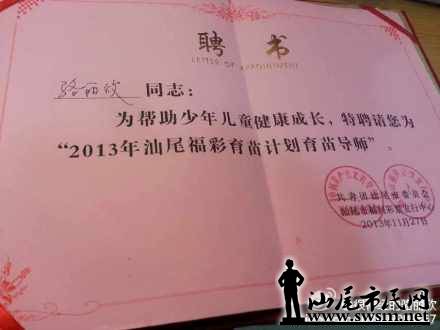 聘 书
LETTER OF APPOINTMENT
骆丽欣 同志：
为帮助少年儿童健康成长，特聘请您为
“2013年汕尾福彩育苗计划育苗导师”。
共青团汕尾市委员会
汕尾市福利彩票发行中心
2013年11月27日
汕尾市民网
www.swsm.net